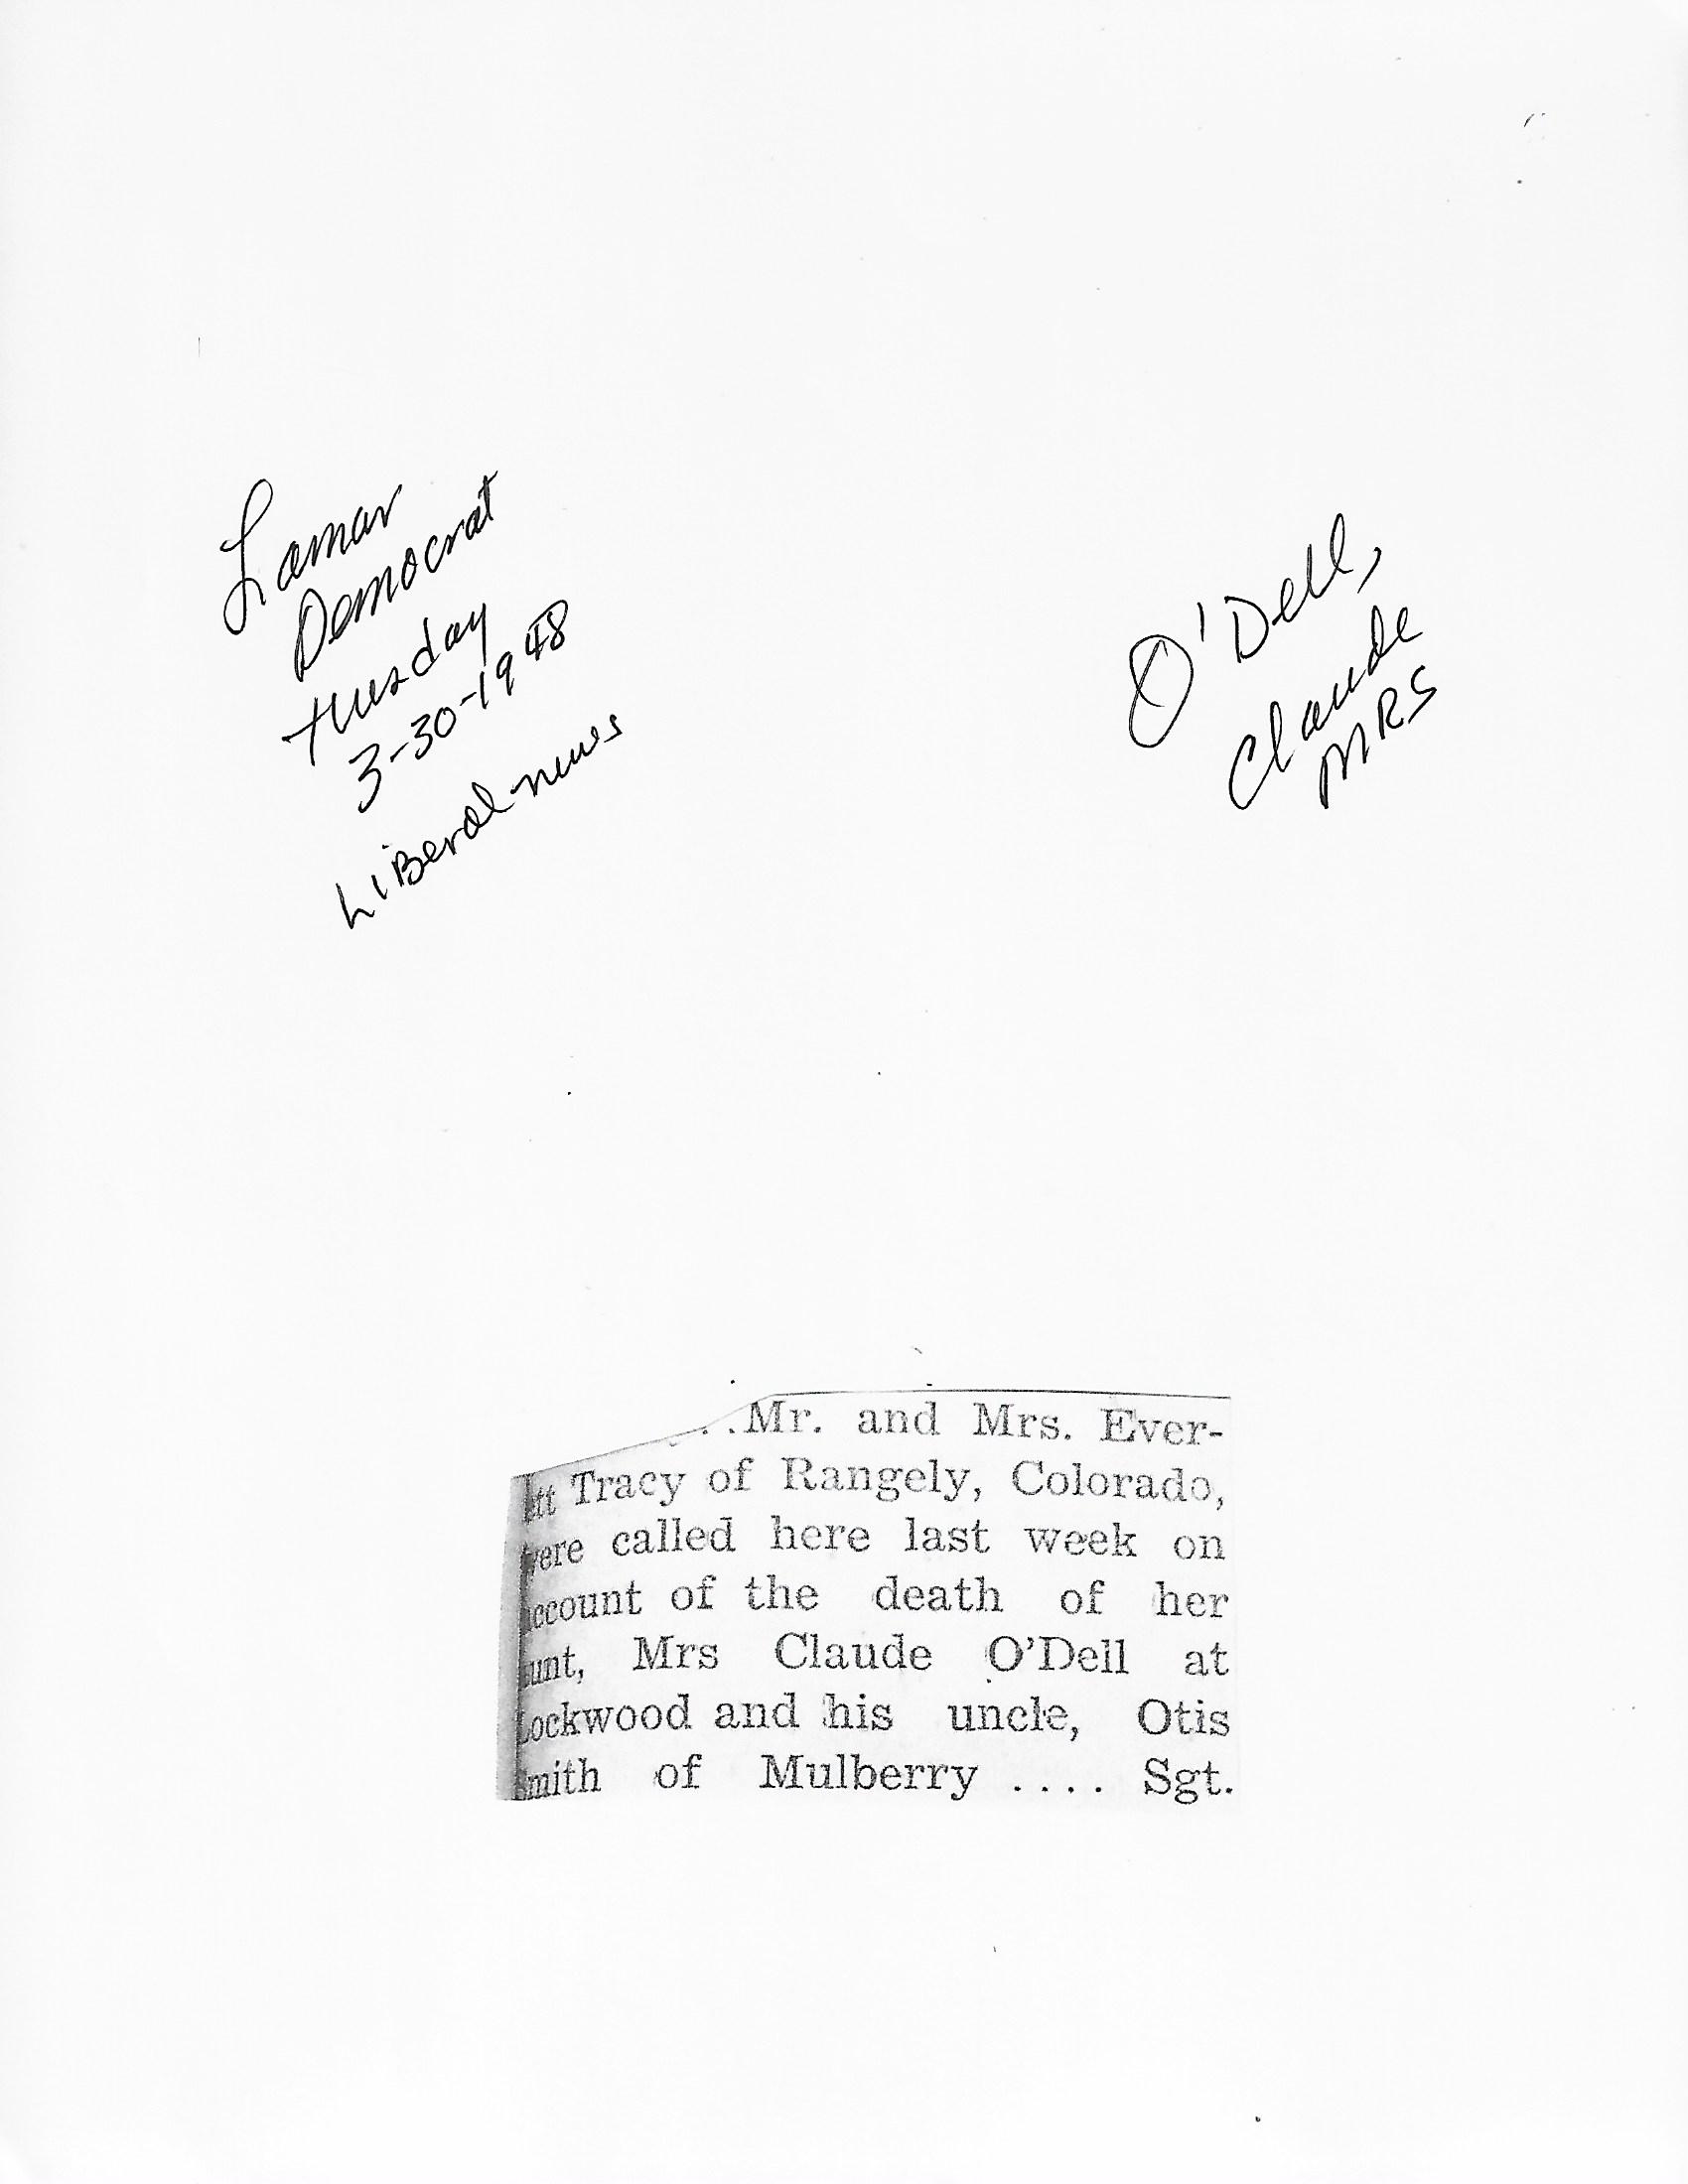 Lamar
Democrat
tuesday
3-30-1948
Liberal-news
O'Dell,
Claude
MRS
. .Mr. and Mrs. Ever-
ett Tracy of Rangely, Colorado,
were called here last week on
account of the death of her
aunt, Mrs Claude O'Dell at
Lockwood and his uncle, Otis
Smith of Mulberry .... Sgt.